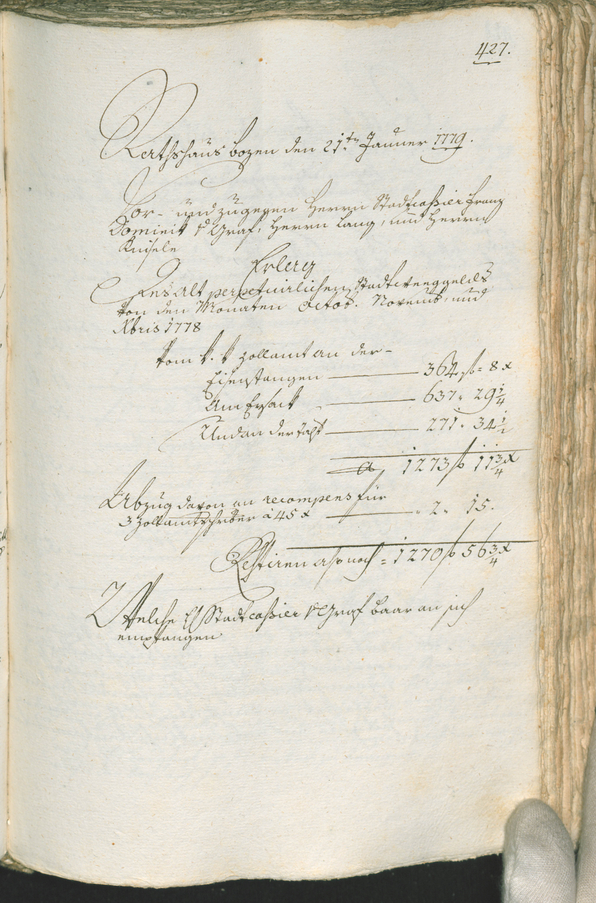 427.
Rathshaus Bozen den 21ten Jänner 1779.
Vor- und zugegen Herrn Stadtcassier Franz
Dominik v Graf, Herrn Lang, und Herrn
Knisele
Erlerg
des alt perpetuirlichen Stadtweeggelds
von den Monaten Octob. Novemb. und
Xbris 1778
Vom k. k. Zollamt an der-
Eisenstangen — 364 f. 8 x
Am Eysack — 637. 29 1/4
Und an der Talf. — 271. 34 1/2
1273 f 11 3/4 x
Abzug davon an recompens für
3 Zollamtschreiber a 45 x — 2. 15.
Restiren also noch = 1270 f 56 3/4 x
Welche H Stadtcassier v Graf baar an sich
empfangen